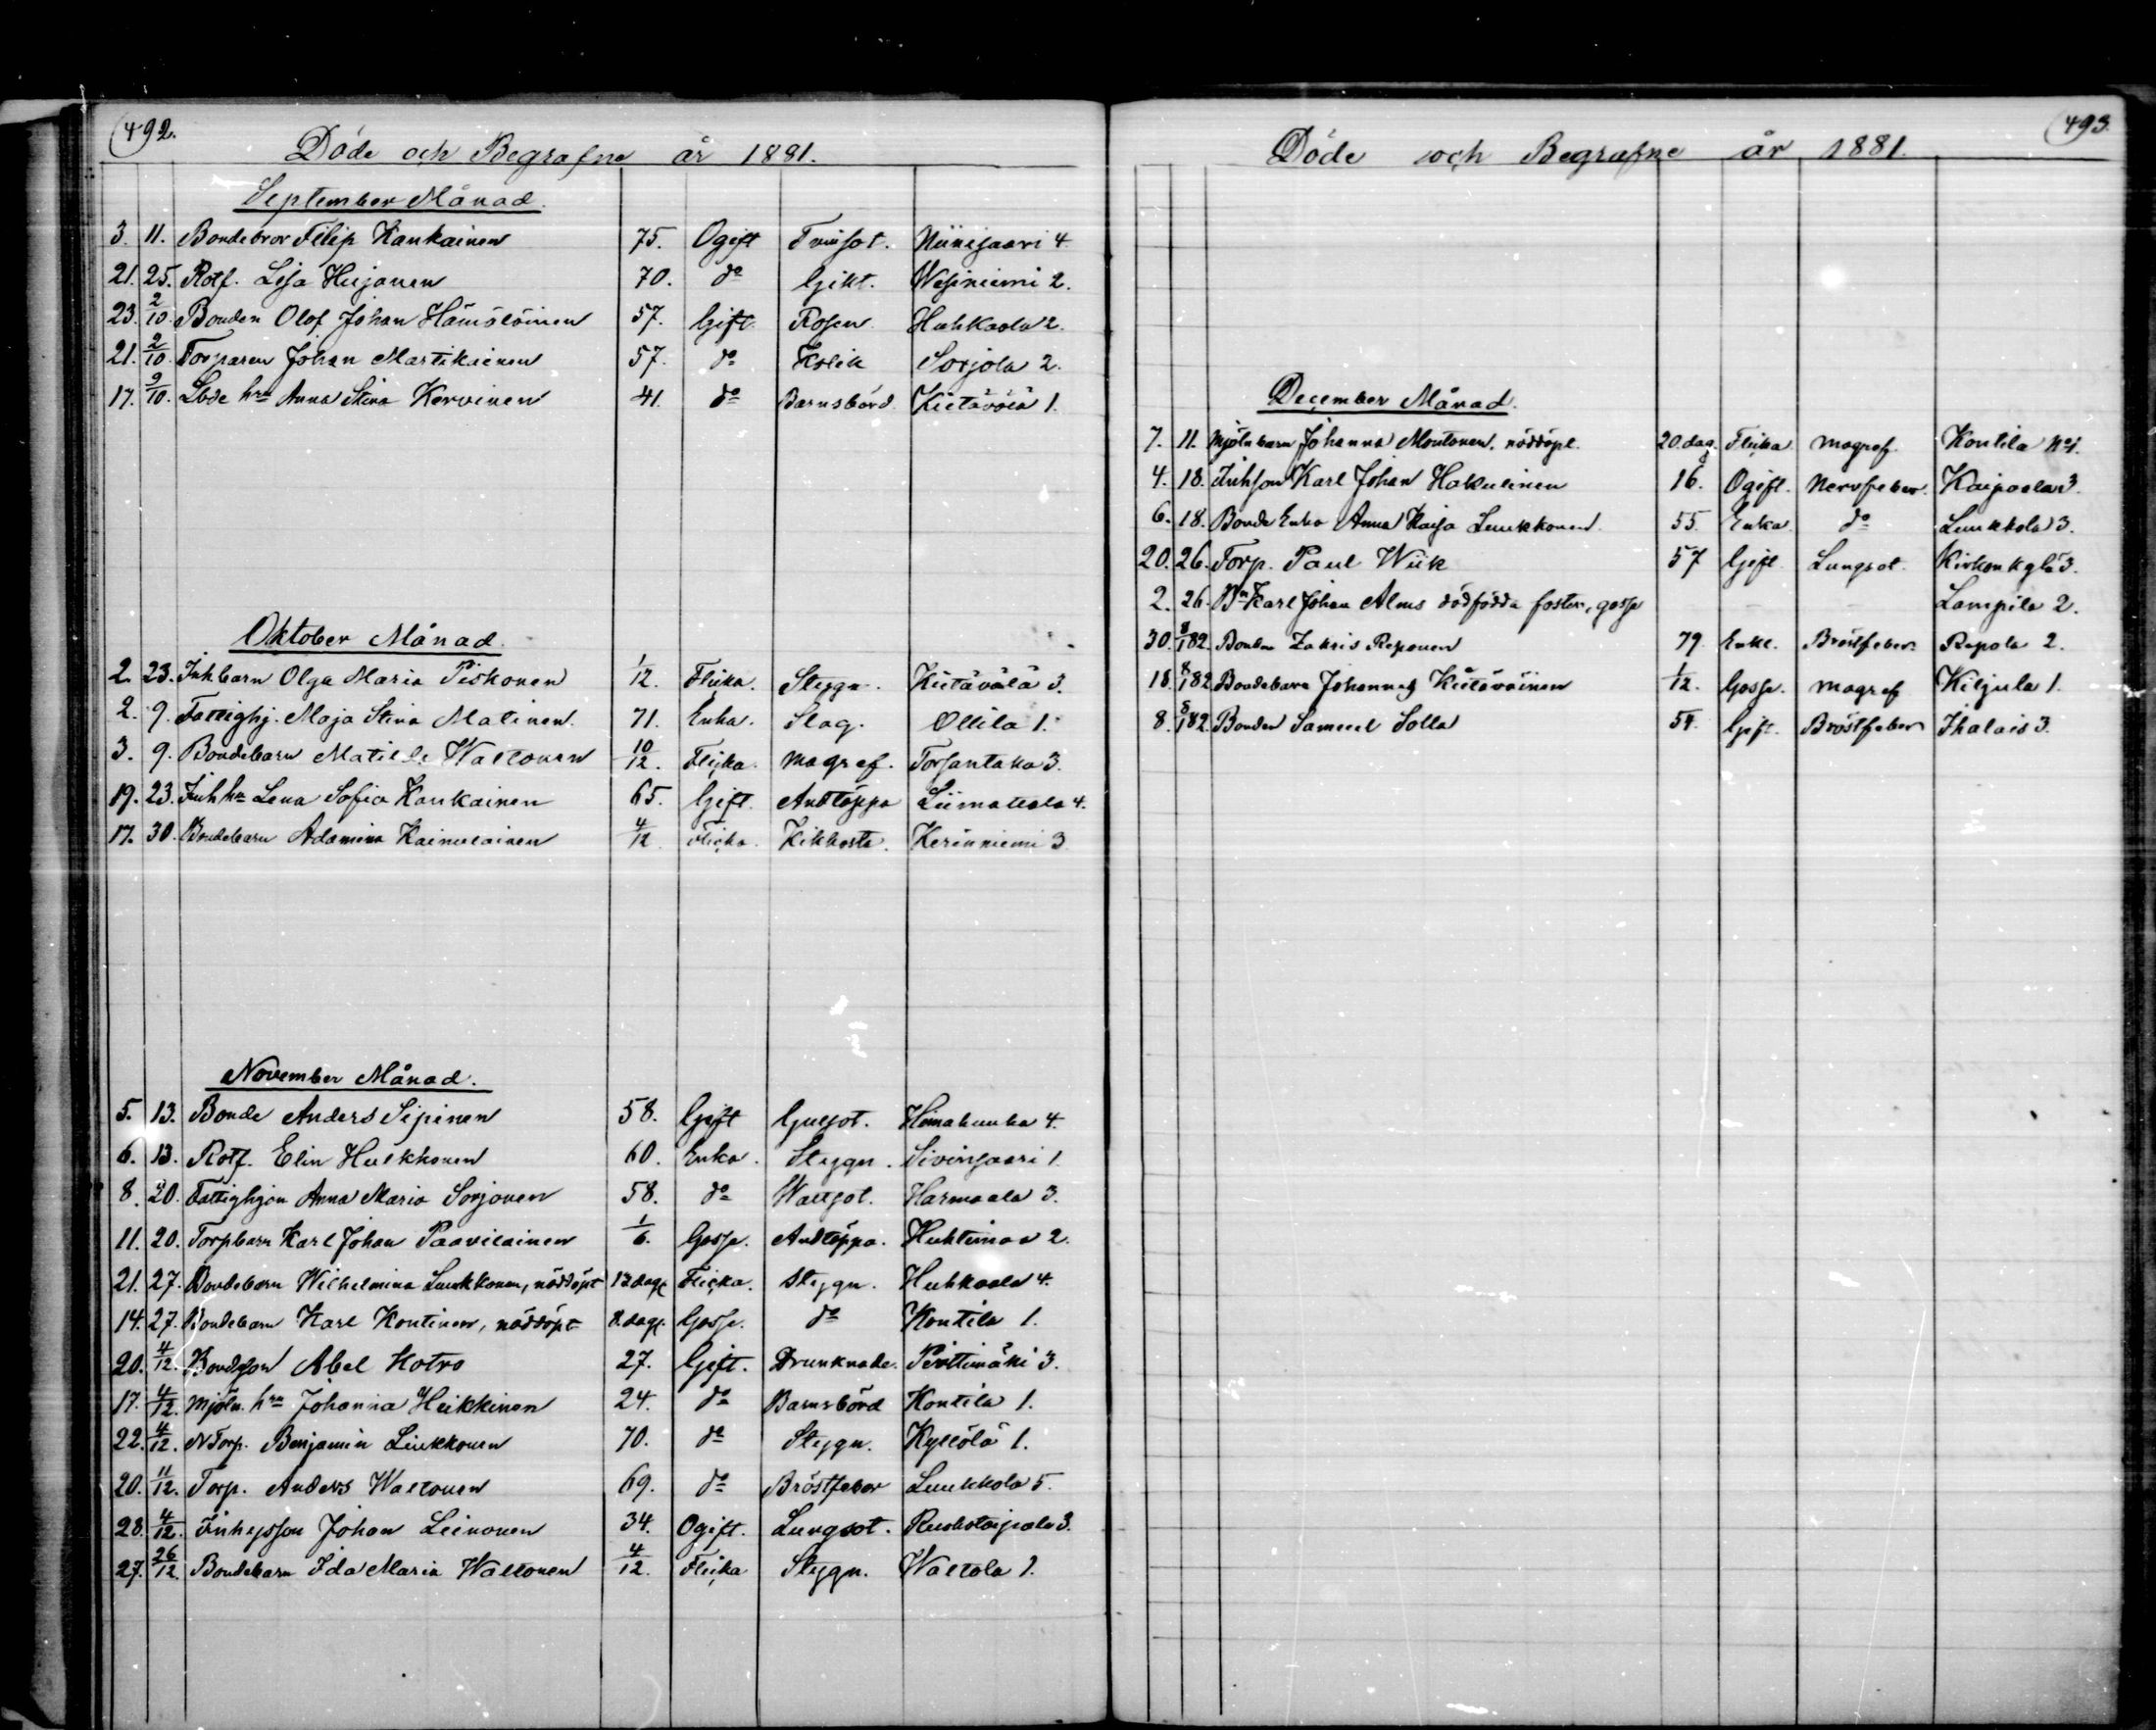 492.
Döde och Begrafne år 1881.
September Månad.
3. 11. Bondebror Filip Kaukainen 75. Ogift Tvinsot. Niinisaari 4.
21. 25. Rotf. Lisa Heijonen 70. do Gikt. Wesiniemi 2.
23. 2/10. Bonden Olof Johan Hämäläinen 57. Gift Rosen Huhkaala 2.
21. 2/10. Torparen Johan Martikainen 57. do Kolik Sorjola 2.
17. 9/10. Lbde hru Anna Stina Kervinen 41. do Barnsbörd Kietävälä 1.
Oktober Månad.
2. 23. Inhbarn Olga Maria Piskonen 1/12. Flicka. Stygn. Kietävälä 3.
2. 9. Fattighj. Maja Stina Matinen. 71. Enka. Slag. Ollila 1.
3. 9. Bondebarn Matilda Waltonen 10/12. Flicka. magref. Torsantaka 3.
19. 23. Inh hu Lena Sofia Kaukainen 65. Gift. Andtäppa Liimattala 4.
17. 30. Bondebarn Adamina Kainulainen 4/12 Flicka. Kikhosta. Kerinniemi 3.
November Månad.
5. 13. Bonde Anders Sipinen 58. Gift Gulsot. Himahuuha 4.
6. 13. Rotf. Elin Hulkkonen 60. Enka. Stygn. Sivinsaari 1.
8. 20. Fattighjon Anna Maria Sorjonen 58. do Wattsot. Harmaala 3.
11. 20. Torpbarn Karl Johan Paavilainen 1/6. Gosse. Andtäppa. Huhtimaa 2.
21. 27. Bondebarn Wilhelmina Luukkonen, nöddöpt 13 dag. Flicka. Stygn. Huhkaala 4.
14. 27. Bondebarn Karl Kontinen, nöddöpt 8. dag. Gosse. do Kontila 1.
20. 4/12. Bondeson Abel Kotro 27. Gift. Drunknade. Perttimäki 3.
17. 4/12. Mjöln. hru Johanna Heikkinen 24. do Barnsbörd Kontila 1.
22. 4/12. N Torp. Benjamin Liukkonen 70. do Stygn. Kyllölä 1.
20. 11/12. Torp. Anders Waltonen 69. do Bröstfeber Luukkola 5.
28. 4/12. Inhysson Johan Leinonen 34. Ogift. Lungsot. Ruokotaipale 3.
27. 26/12. Bondebarn Ida Maria Waltonen 4/12. Flicka Stygn. Waltola 1.
493.
Döde och Begrafne år 1881.
December Månad.
7. 11. Mjölnbarn Johanna Montonen. nöddöpt. 20. dag. Flicka magref. Kontila No 1.
4. 18. Inhson Karl Johan Hakulinen 16. Ogift. Nervfeber. Kaipaala 3.
6. 18. Bonde Enka Anna Kaisa Luukkonen. 55. Enka. do Luukkola 3.
20. 26. Torp. Paul Wiik 57 Gift Lungsot 3.
2. 26. Bn Karl Johan Alms dödfödda foster, gosse Lampila 2.
30. 8/1 82. Bonden Zakris Reponen 79. Enkl. Bröstfeber. Repola 2.
18. 8/1 82. Bondebarn Johannes Kietäväinen 1/12. Gosse. magref Kiljula 1.
8. 8/1 82. Bonden Samuel Solla 54. Gift. Bröstfeber Ihalais 3.